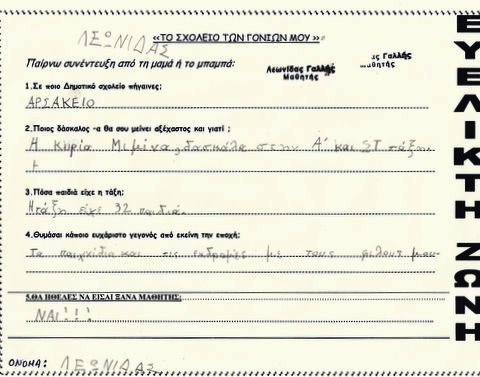 ΛΕΩΝΙΔΑΣ
«ΤΟ ΣΧΟΛΕΙΟ ΤΩΝ ΓΟΝΙΩΝ ΜΟΥ »
Παίρνω συνέντευξη από τη μαμά ή το μπαμπά:
Λεωνίδας Γαλλής
Μαθητής
ς Γαλλής
Μαθητής
1.Σε ποιο Δημοτικό σχολείο πήγαινες;
ΑΡΣΑΚΕΙΟ
2.Ποιος δάσκαλος -α θα σου μείνει αξέχαστος και γιατί ;
Η κυρία Μιμίνα, δασκάλα στην Α΄ και ΣΤ τάξη
3.Πόσα παιδιά είχε η τάξη;
Η τάξη είχε 32 παιδιά.
4.Θυμάσαι κάποιο ευχάριστο γεγονός από εκείνη την εποχή;
Τα παιχνίδια και τις εκδρομές με τους φίλους μου
5.ΘΑ ΗΘΕΛΕΣ ΝΑ ΕΙΣΑΙ ΞΑΝΑ ΜΑΘΗΤΗΣ;
ΝΑΙ!!!
ΟΝΟΜΑ: ΛΕΩΝΙΔΑΣ
ΕΥΕΛΙΚΤΗ ΖΩΝΗ